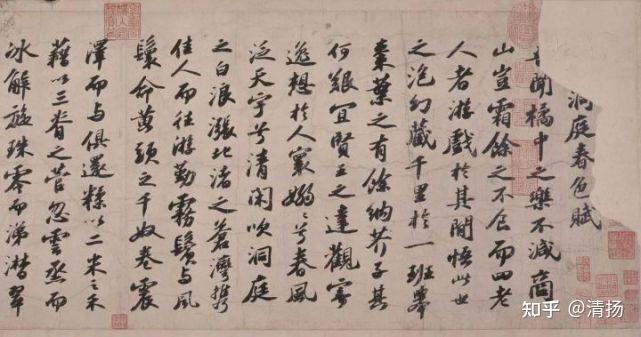 洞庭春色賦
聞橘中之樂不減商
山豈霜餘之不食而四老
人者游戲於其間悟此世
之泡幻藏千里於一班舉
棗葉之有餘納芥子其
何艱宜賢王之達觀寄
逸想於人寰嫋〻兮春風
泛天宇兮清閑吹洞庭
之白浪漲北渚之蒼灣携
佳人而往游勤霧鬢与風
鬟命黃頭之千奴卷震
澤而与俱還糅以二米之禾
藉以三脊之菅忽雲烝而
冰解旋珠零而涕潸翠
知乎 @清扬